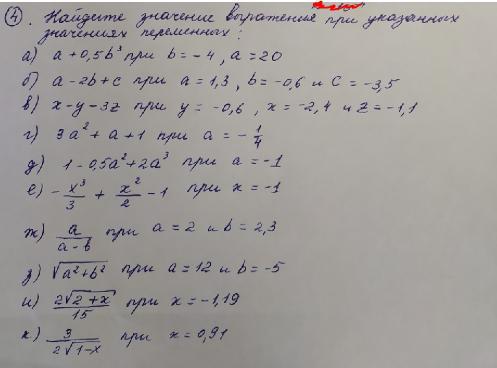 ④. Найдите значение выражения при указанных
значениях переменных:
а) a + 0,5b³ при b = -4, a = 20
б) a - 2b + c при a = 1,3, b = -0,6 и c = -3,5
в) x - y - 3z при y = -0,6, x = -2,4 и z = -1,1
г) 3a² + a + 1 при a = -1/4
д) 1 - 0,5a² + 2a³ при a = -1
е) -x³/3 + x²/2 - 1 при x = -1
ж) a/(a - b) при a = 2 и b = 2,3
з) √(a² + b²) при a = 12 и b = -5
и) 2√(2 + x)/15 при x = -1,19
к) 3/(2√(1 - x)) при x = 0,91